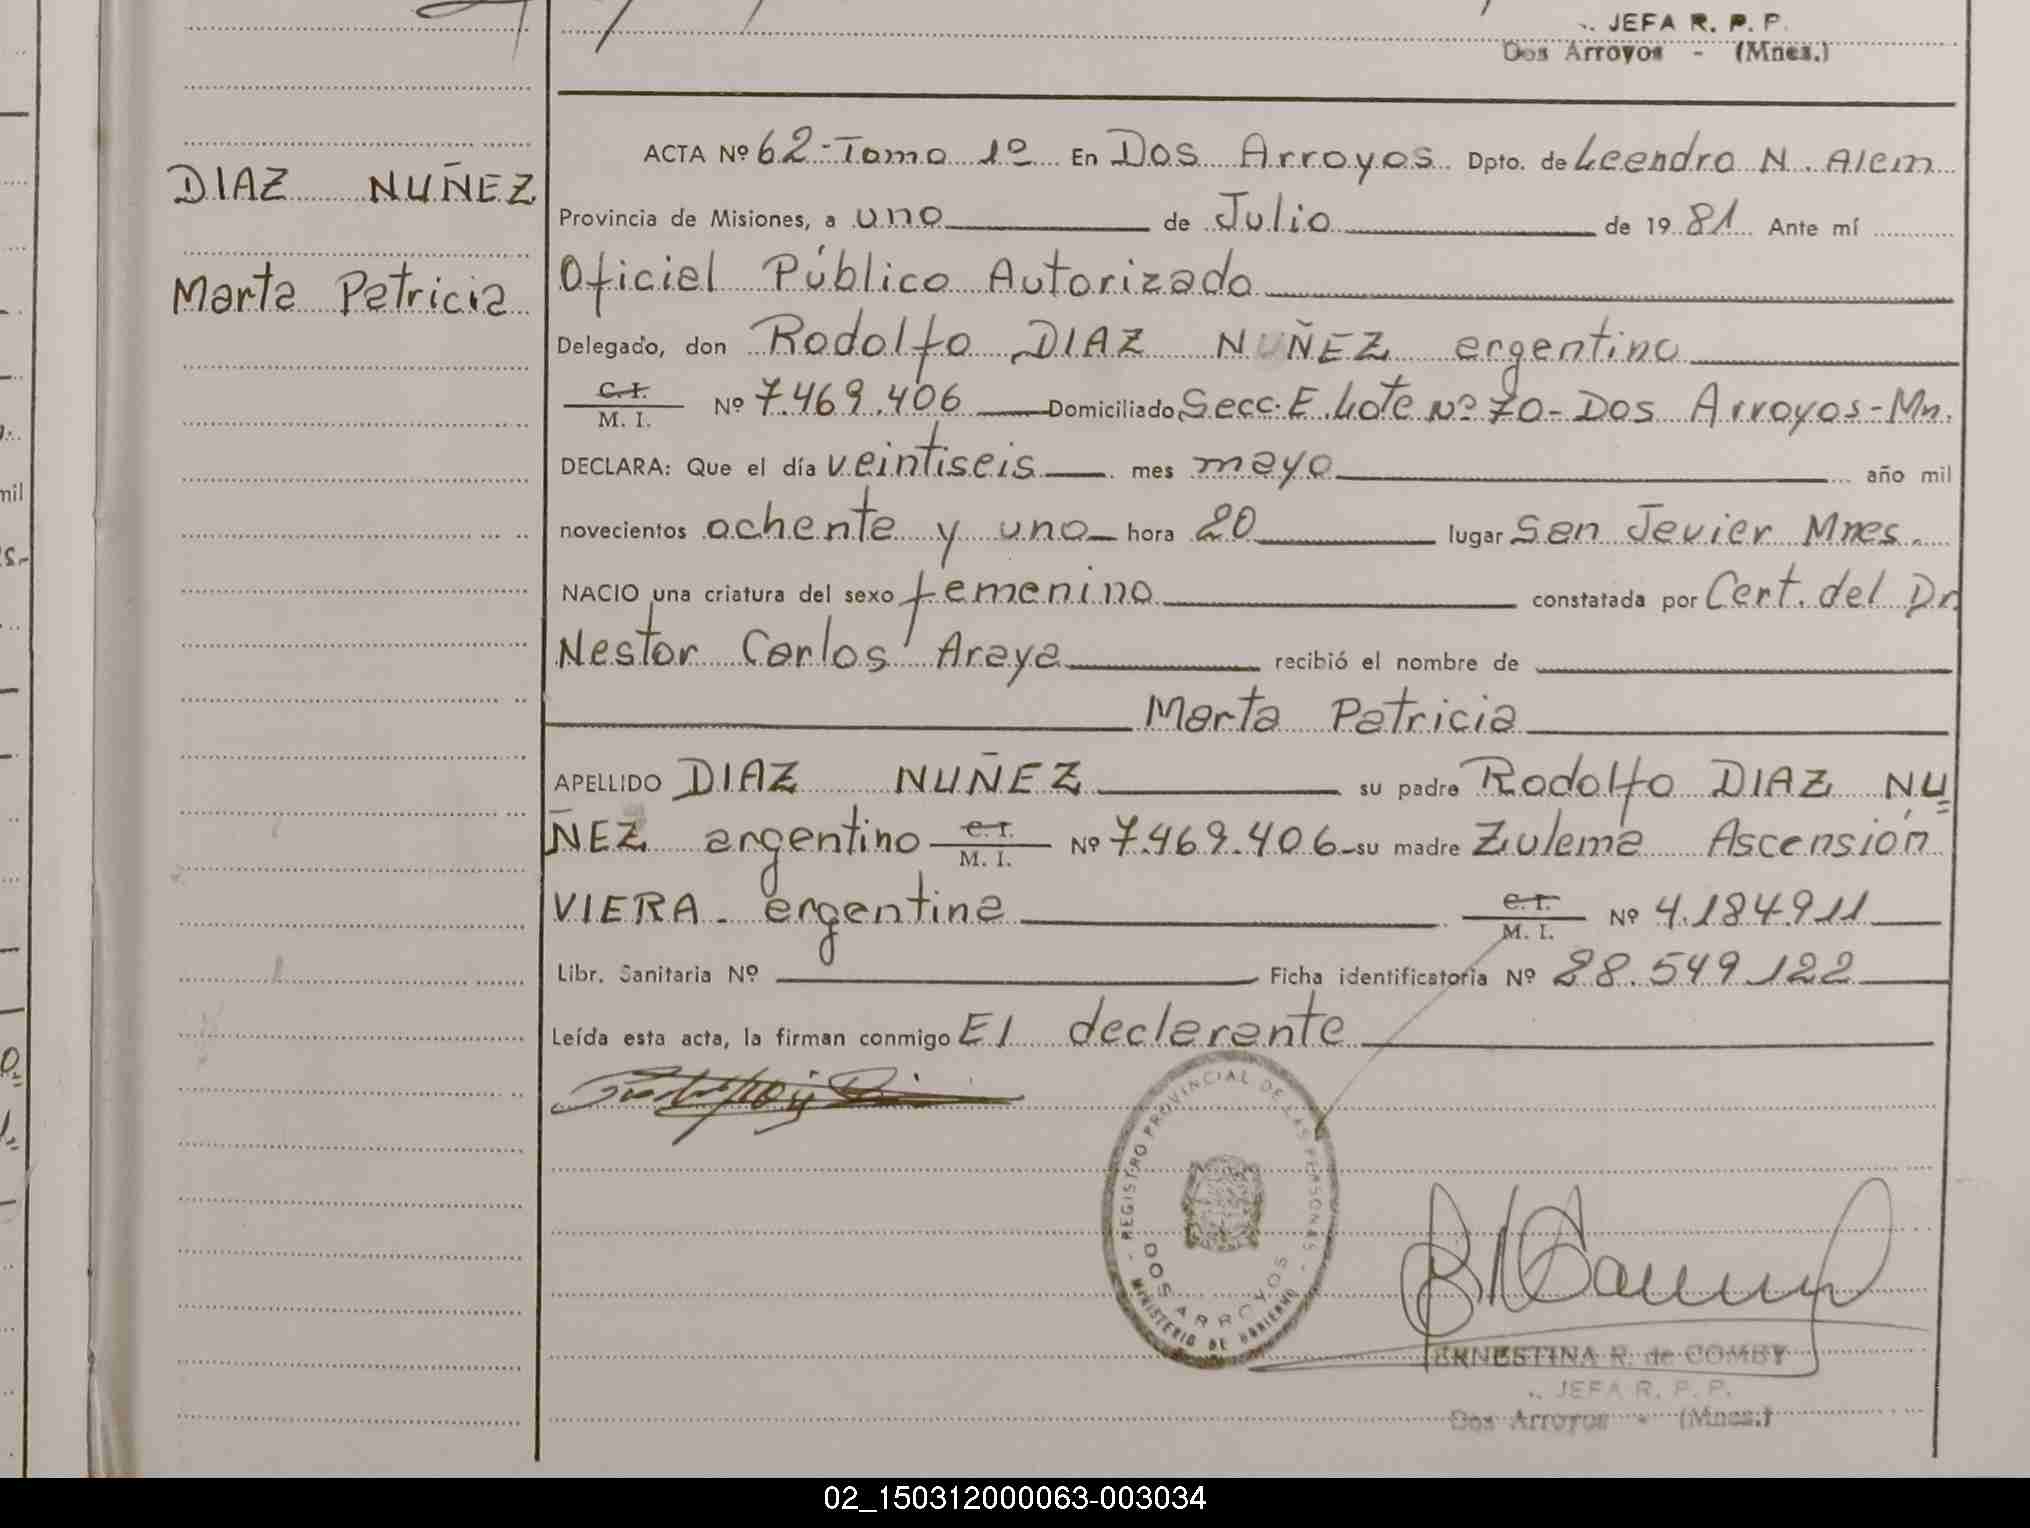 JEFA R. P. P.
Dos Arroyos - (Mnes.)
DIAZ NUÑEZ
Marta Patricia
ACTA Nº 62-Tomo 1º En Dos Arroyos Dpto. de Leandro N. Alem
Provincia de Misiones, a uno de Julio de 1981 Ante mí
Oficial Público Autorizado
Delegado, don Rodolfo DIAZ NUÑEZ argentino
C. I.
M. I. Nº 7.469.406 Domiciliado Secc. E. Lote Nº 70- Dos Arroyos-Mn.
DECLARA: Que el día veintiseis mes mayo año mil
novecientos ochenta y uno hora 20 lugar San Javier Mnes.
NACIO una criatura del sexo femenino constatada por Cert. del Dr.
Nestor Carlos Araya recibió el nombre de
Marta Patricia
APELLIDO DIAZ NUÑEZ su padre Rodolfo DIAZ NU=
ÑEZ argentino C. I. M. I. Nº 7.469.406 su madre Zulema Ascensión
VIERA - argentina C. I. M. I. Nº 4.184.911
Libr. Sanitaria Nº Ficha identificatoria Nº 28.549.122
Leída esta acta, la firman conmigo El declarante
- REGISTRO PROVINCIAL DE LAS PERSONAS -
DOS ARROYOS
MINISTERIO DE GOBIERNO
ERNESTINA R. de COMBY
JEFA R. P. P.
Dos Arroyos - (Mnes.)
mil
02_150312000063-003034